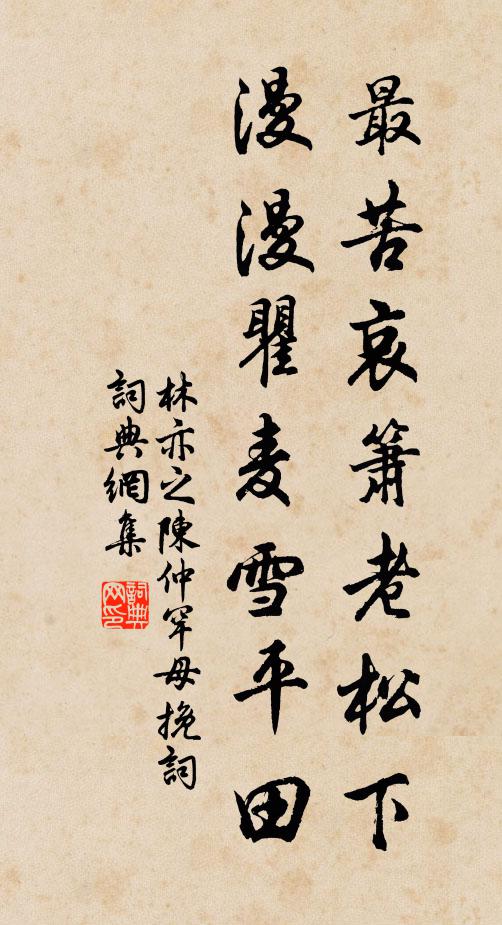 最苦哀簫老松下
漫漫瞿麦雪平田
林亦之陳仲罕母挽詞
詞典網集
詞典網印